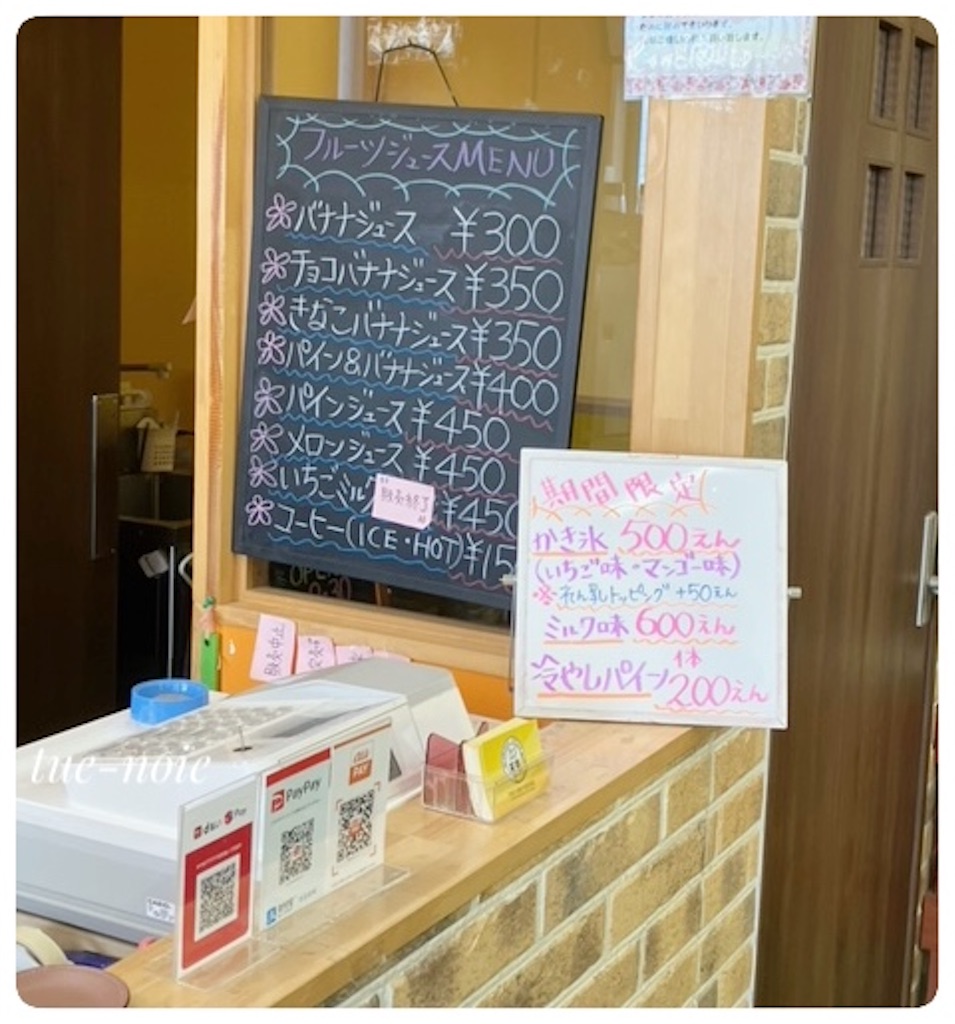 フルーツジュースMENU
バナナジュース ¥300
チョコバナナジュース ¥350
きなこバナナジュース ¥350
パイン&バナナジュース ¥400
パインジュース ¥450
メロンジュース ¥450
いちごミルク ¥450
販売終了
コーヒー(ICE・HOT) ¥15
期間限定
かき氷 500えん
(いちご味・マンゴー味)
※れん乳トッピング +50えん
ミルク味 600えん
冷やしパイン 1本 200えん
販売中止
PayPay
au PAY
d払い
tue-noie